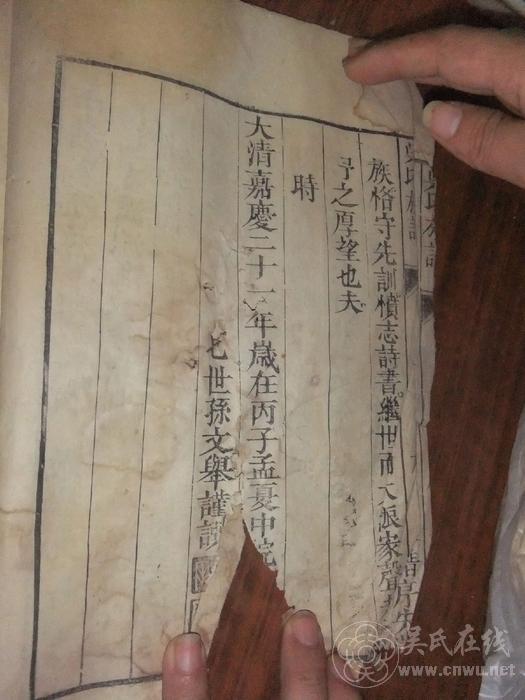 吳氏族譜
譜序
族恪守先訓憤志詩書繼世而大振家聲
予之厚望也夫
時
大清嘉慶二十一年歲在丙子孟夏中浣
七世孫文舉謹
吴氏在线
www.cnwu.net